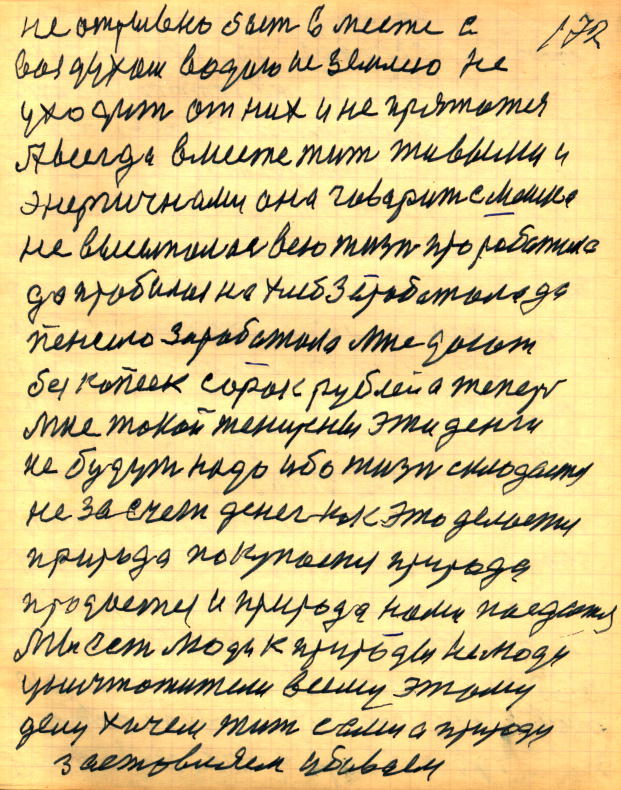 не отривно быт в месте с 172
воздухом водою и землею не
уходит от них и не прятатся
А всегда вместе жит живыми и
энергичнами она говарит с мешка
не высыпалас всю жизн проработала
да пробылас на хлеб заработала да
пенсию заработала мне дают
без копеек сорок рублей а теперь
мне такой женщены эти денги
не будут надо ибо жизн складается
не за счет денег как это делается
природа покупается природа
продается и природа нами поедается
Мы сет люди к природы не люди
уничтожители всему этому
делу хочем жит сами а природу
заставляем убиваем